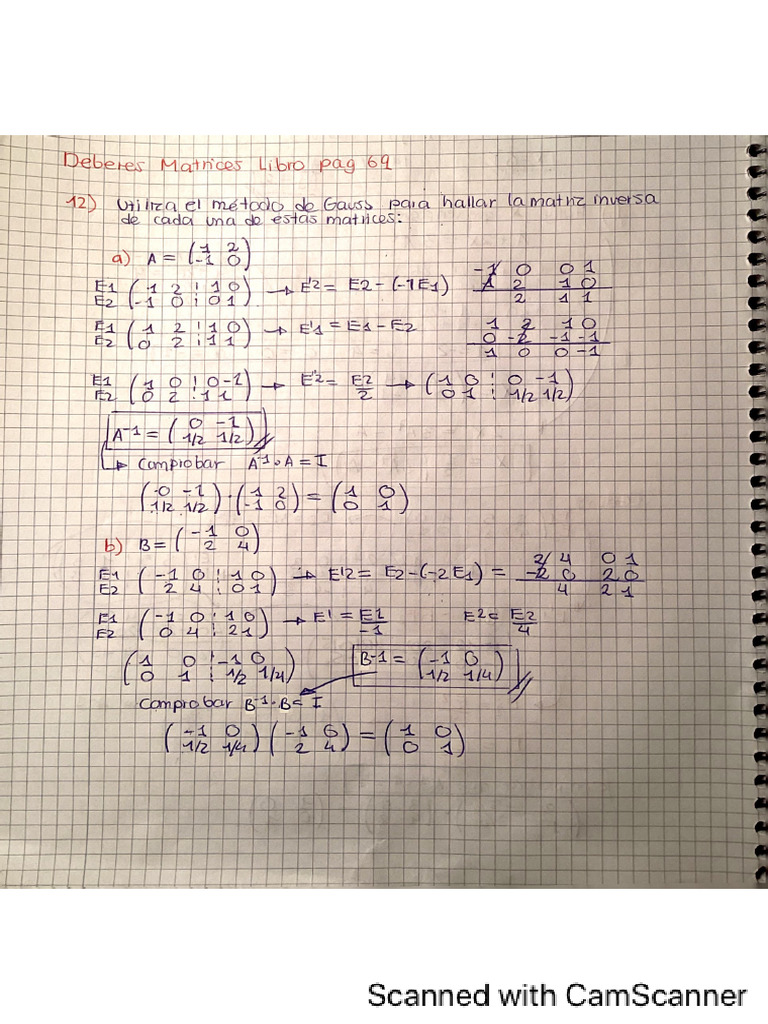 Deberes Matrices Libro pag 69
12) Utiliza el método de Gauss para hallar la matriz inversa
de cada una de estas matrices:
a) A = ( 1 2
-1 0 )
E1 ( 1 2 ⋮ 1 0
E2 -1 0 ⋮ 0 1 ) → E'2 = E2 - (-1E1)
-1 0 0 1
1 2 1 0
2 1 1
E1 ( 1 2 ⋮ 1 0
E2 0 2 ⋮ 1 1 ) → E'1 = E1 - E2
1 2 1 0
0 -2 -1 -1
1 0 0 -1
E1 ( 1 0 ⋮ 0 -1
E2 0 2 ⋮ 1 1 ) → E'2 = E2/2 → ( 1 0 ⋮ 0 -1
0 1 ⋮ 1/2 1/2 )
A-1 = ( 0 -1
1/2 1/2 )
↳ comprobar A-1 · A = I
( 0 -1
1/2 1/2 ) · ( 1 2
-1 0 ) = ( 1 0
0 1 )
b) B = ( -1 0
2 4 )
E1 ( -1 0 ⋮ 1 0
E2 2 4 ⋮ 0 1 ) → E'2 = E2 - (-2E1) =
2 4 0 1
-2 0 2 0
4 2 1
E1 ( -1 0 ⋮ 1 0
E2 0 4 ⋮ 2 1 ) → E' = E1/-1 E2 = E2/4
( 1 0 ⋮ -1 0
0 1 ⋮ 1/2 1/4 )
B-1 = ( -1 0
1/2 1/4 )
comprobar B-1 · B = I
( -1 0
1/2 1/4 ) ( -1 0
2 4 ) = ( 1 0
0 1 )
Scanned with CamScanner